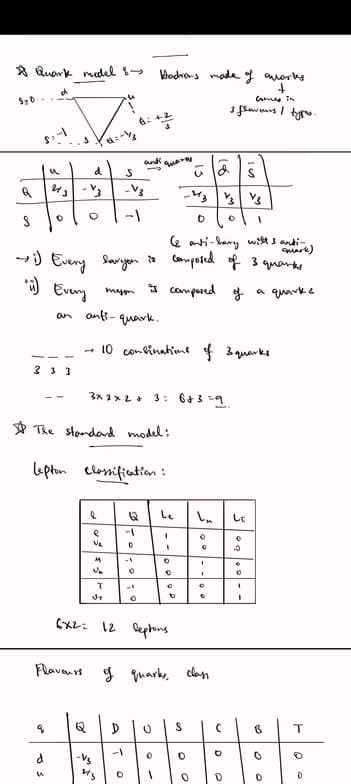 ☆ Quark model :→ Hadrons made of quarks
↓
comes in
3 flavours / types.
d u
S=0
Q = +2/3
S=-1 s Q=-1/3
u d s anti quarks → ū d̄ s̄
Q 2/3 -1/3 -1/3 -2/3 1/3 1/3
S 0 0 -1 0 0 1
(& anti-bary with 3 anti-quark)
→ i) Every baryon is composed of 3 quarks
ii) Every meson is composed of a quark &
an anti-quark.
_ _ _ → 10 combinations of 3 quarks
3 3 3
-- 3x2x2 + 3: 6+3=9
☆ The standard model:
Lepton classification:
l Q Le Lμ Lτ
e -1 1 0 0
νe 0 1 0 0
μ -1 0 1 0
νμ 0 0 1 0
τ -1 0 0 1
ντ 0 0 0 1
6x2= 12 leptons
Flavours of quarks, class
q Q D U S C B T
d -1/3 -1 0 0 0 0 0
u 2/3 0 1 0 0 0 0